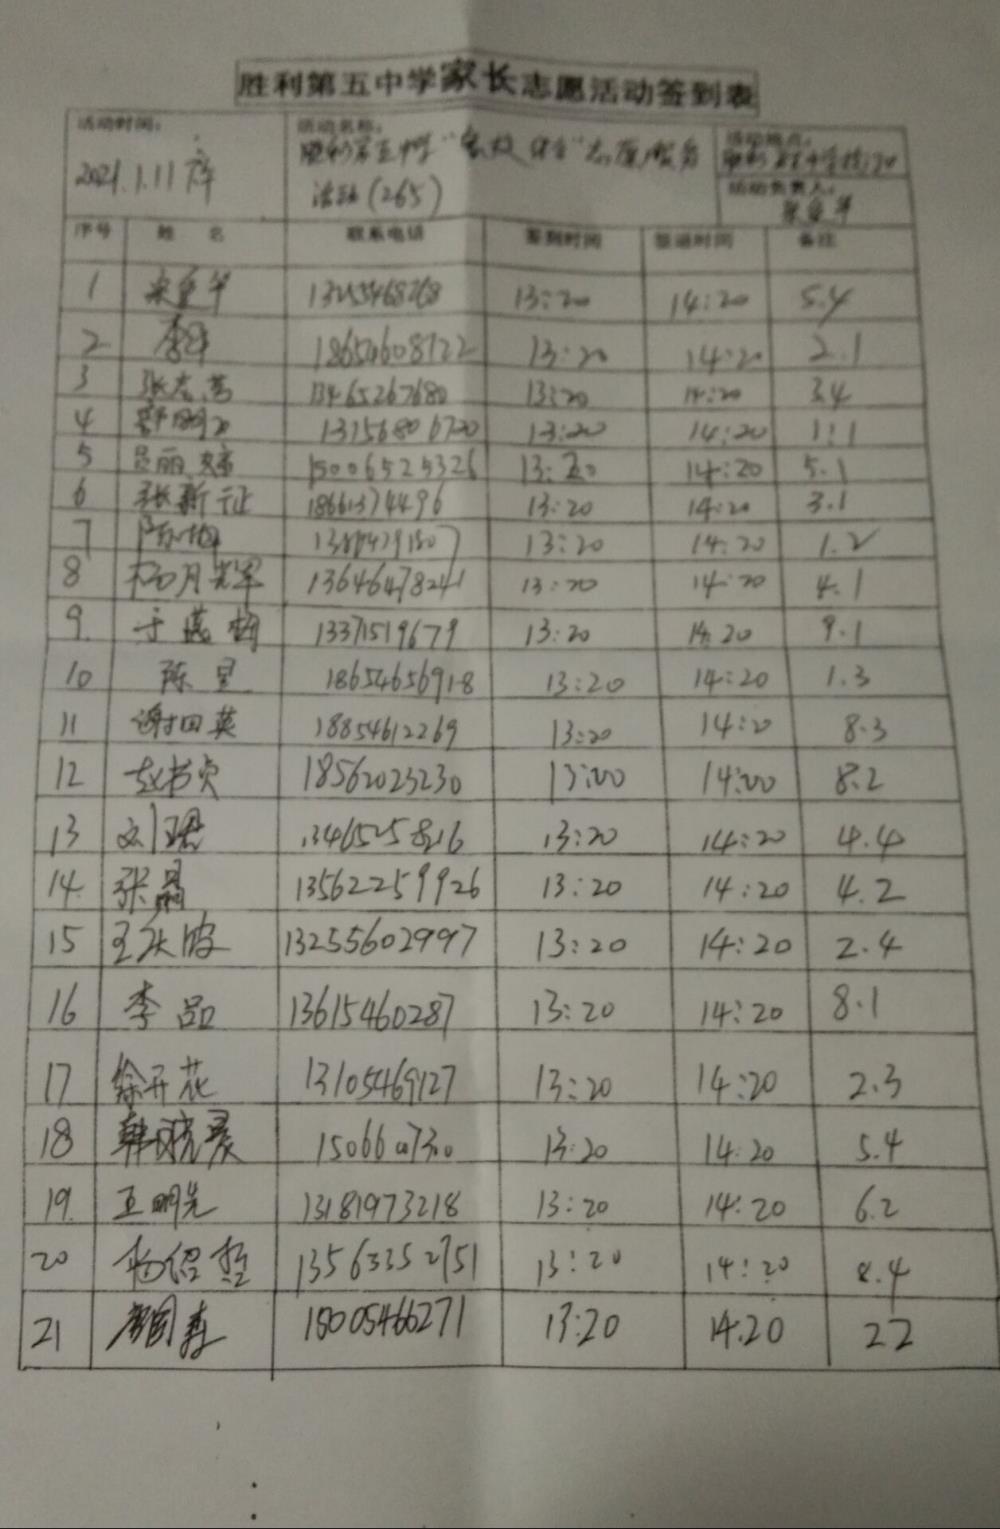 胜利第五中学家长志愿活动签到表
活动时间： 活动名称： 活动地点：
2021.1.11 胜利第五中学"家校 "志愿服务
活动(265) 活动负责人：
序号 姓 名 联系电话 签到时间 签退时间 备注
1 13:20 14:20 5.4
2 18654608722 13:20 14:20 2.1
3 13465267680 13:20 14:20 3.4
4 13156806720 13:20 14:20 1:1
5 吕丽 15006525326 13:20 14:20 5.1
6 张新 18661374496 13:20 14:20 3.1
7 13:20 14:20 1.2
8 13646478241 13:20 14:20 4.1
9. 于 梅 13371519679 13:20 14:20 9.1
10 陈 18654656918 13:20 14:20 1.3
11 谢田英 18854612269 13:20 14:20 8.3
12 赵书贞 18562023230 13:00 14:00 8.2
13 刘珺 13465258216 13:20 14:20 4.4
14. 张晶 13562259926 13:20 14:20 4.2
15 王庆波 13255602997 13:20 14:20 2.4
16 李品 13615460287 13:20 14:20 8.1
17 徐开花 13105469127 13:20 14:20 2.3
18 韩晓晨 13:20 14:20 5.4
19. 王明光 13181973218 13:20 14:20 6.2
20 杨绍哲 13563352751 13:20 14:20 8.4
21 18005466271 13:20 14:20 22